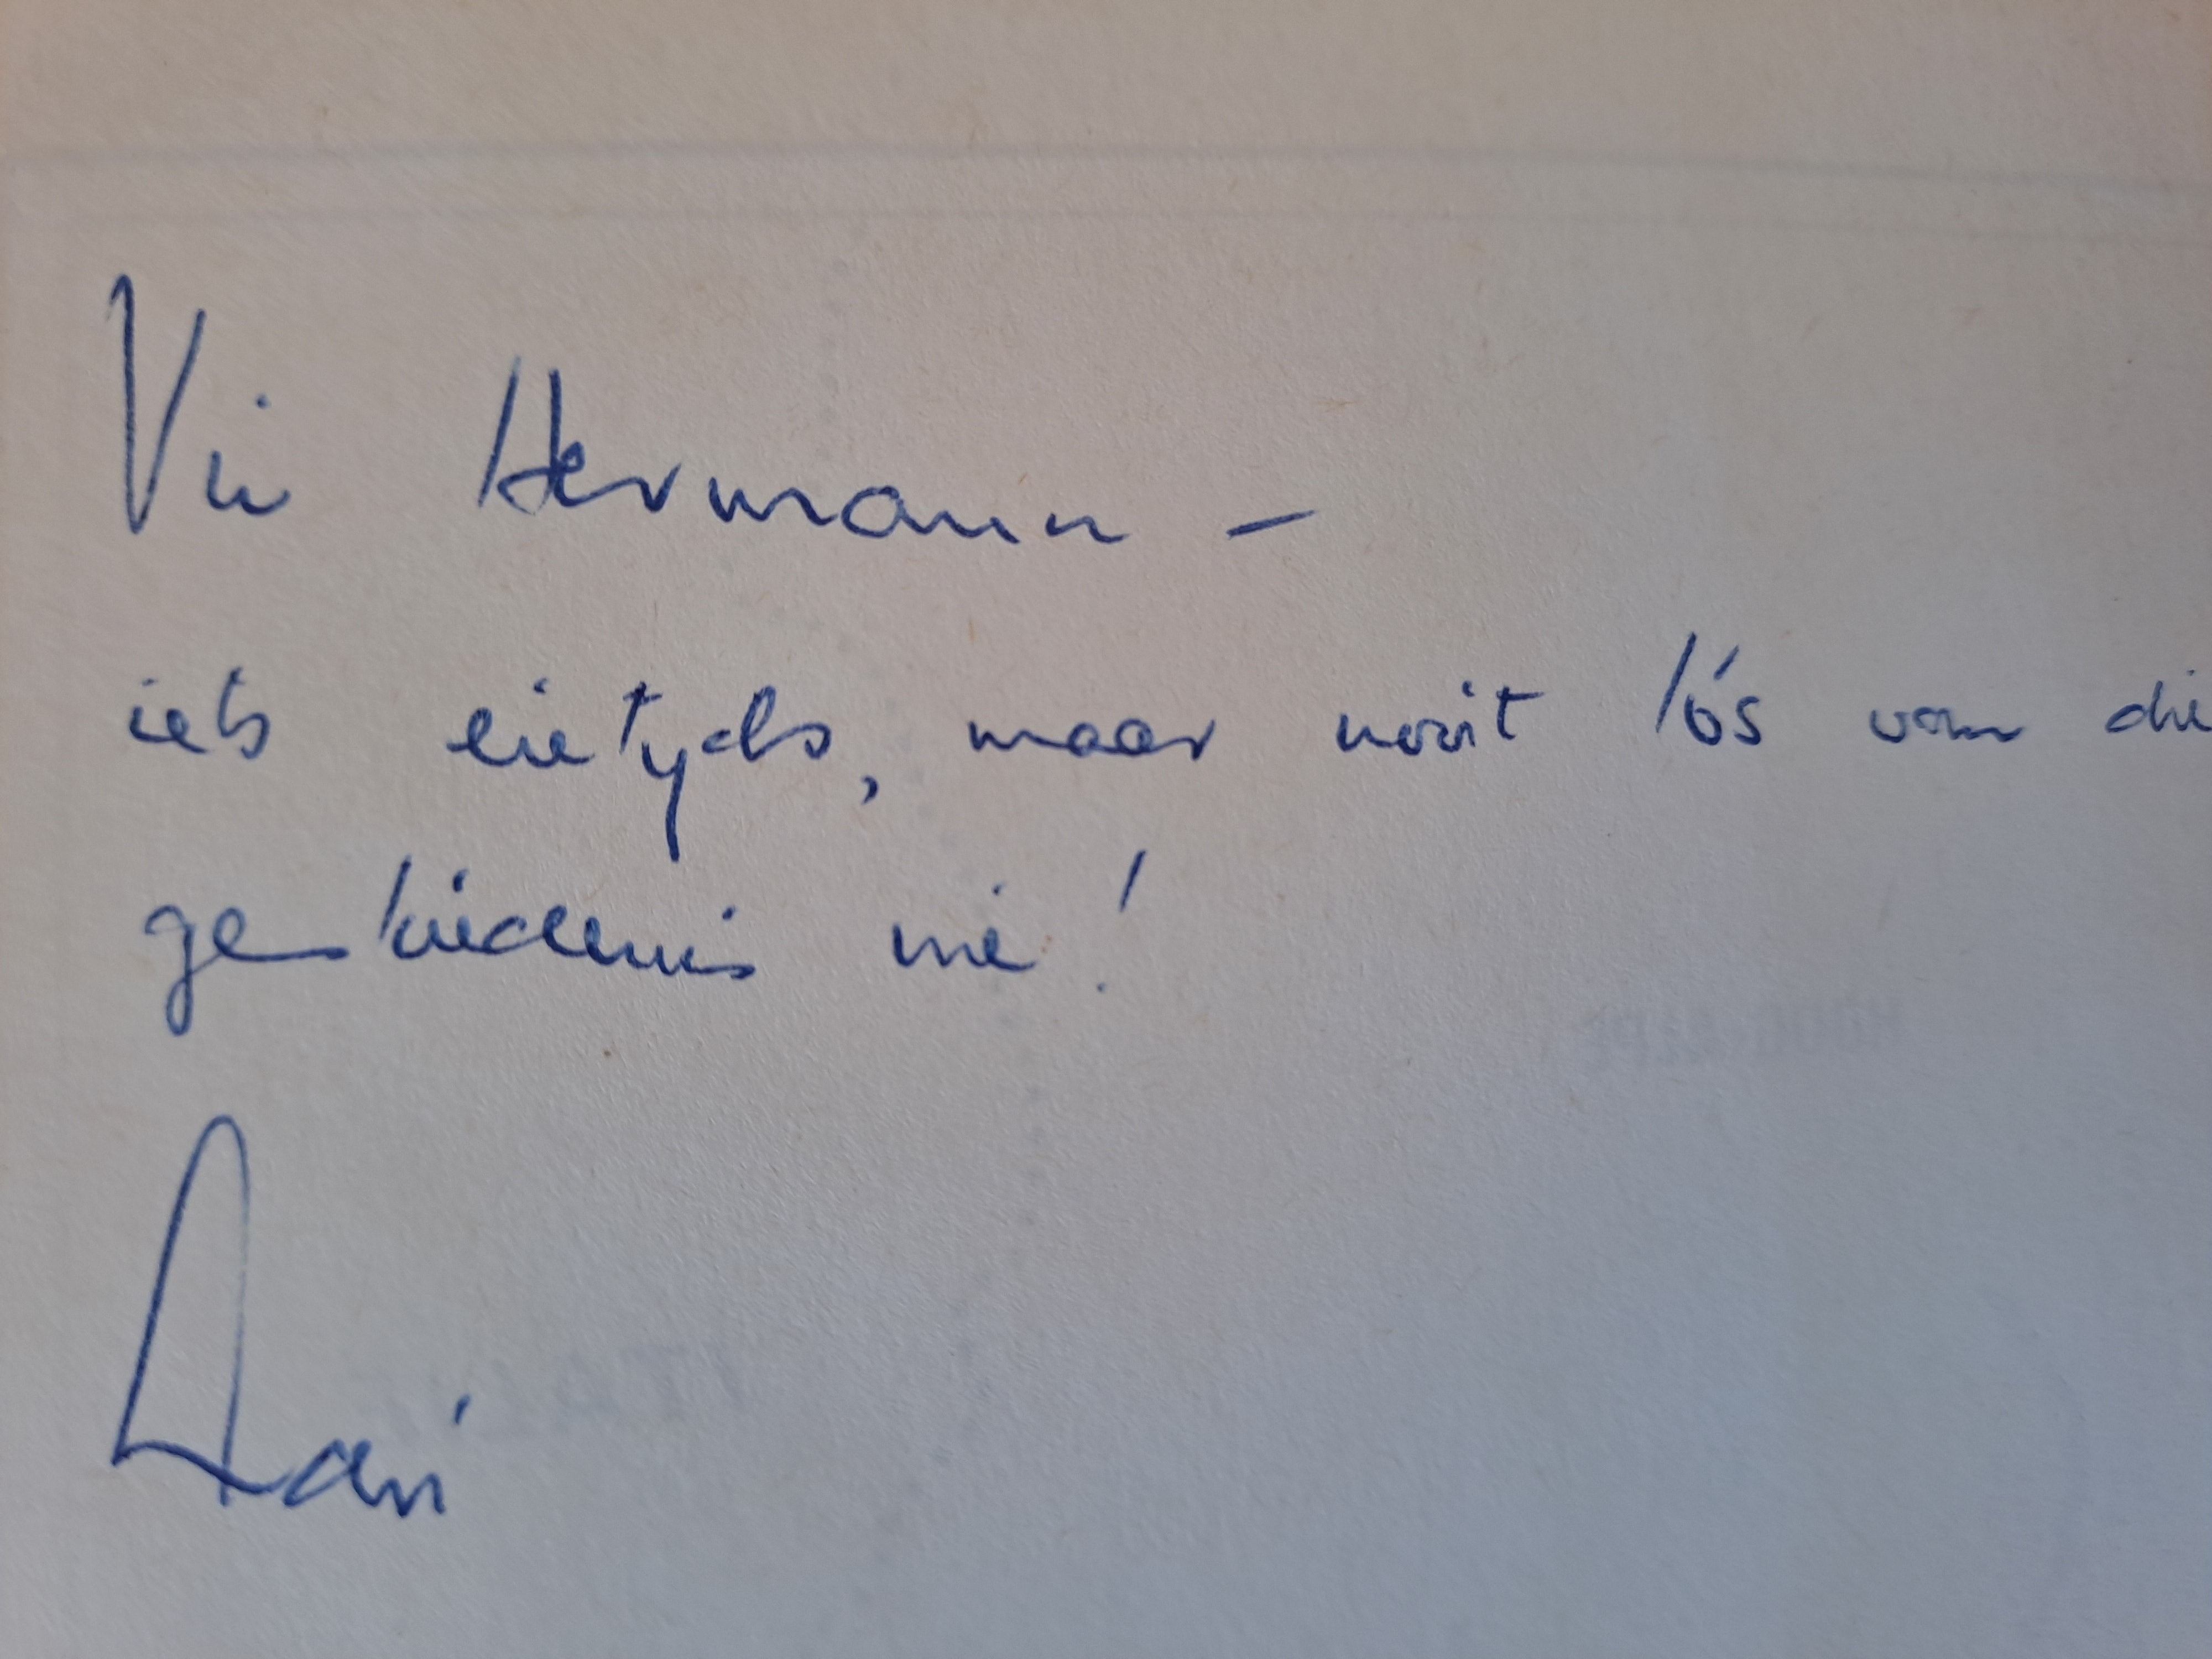 Vir Hermann –
iets eietyds, maar nooit lós van die
geskiedenis nie!